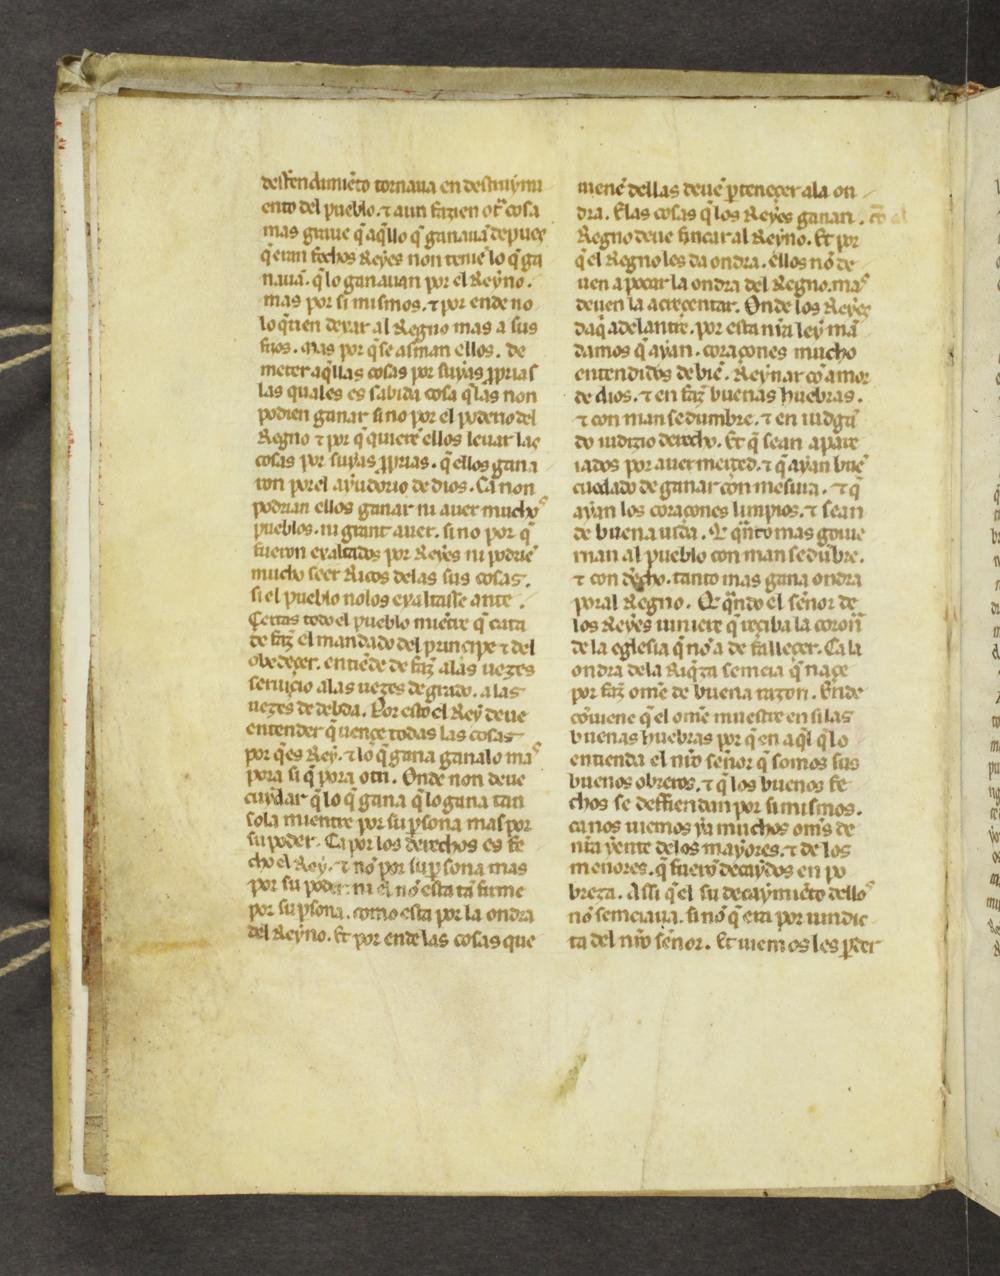 deffendimiẽto tornaua en destruỹmi
ento del pueblo. ⁊ aun fazien otͣ cosa
mas graue q̃ aq̃llo q̃ ganauã depues
q̃ eran fechos Reyes non teniẽ lo q̃ ga
nauã. q̃ lo ganauan por el Reyno.
mas por si mismos. ⁊ por ende no
lo q̃rien dexar al Regno mas a sus
fijos. Mas por q̃ se asman ellos. de
meter aq̃llas cosas por suyas ꝓprias
las quales es sabida cosa q̃ las non
podien ganar si no por el poderio del
Regno ⁊ por q̃ quierẽ ellos leuar las
cosas por suyas ꝓprias. q̃ ellos gana
ron por el ayudorio de dios. Ca non
podrian ellos ganar ni auer muchoˢ
pueblos. ni grant auer. si no por q̃
fueron exaltados por Reyes ni podriẽ
mucho seer Ricos delas sus cosas.
si el pueblo nolos exaltasse ante.
Certas todo el pueblo mietre q̃ cata
de faz̃ el mandado del principe ⁊ del
obedeçer. entiẽde de faz̃ alas uezes
seruiçio alas uezes de grado. alas
uezes de debda. Por esto el Rey deue
entender q̃ uençe todas las cosas
por q̃ es Rey. ⁊ lo q̃ gana ganalo maˢ
pora si q̃ pora otri. Onde non deue
cuydar q̃ lo q̃ gana q̃ lo gana tan
sola mientre por su ꝑsona mas por
su poder. Ca por los derechos es fe
cho el Rey. ⁊ nõ por su ꝑsona mas
por su poder: ni el nõ esta tã firme
por su ꝑsona. como esta por la ondra
del Reyno. Et por ende las cosas que
uienẽ dellas deuẽ ꝑteneçer ala on
dra. Elas cosas q̃ los Reyes ganan.
Regno deue fincar al Reyno. Et por
q̃ el Regno les da ondra. ellos nõ de
uen apocar la ondra del Regno. maˢ
deuen la acreçentar. Onde los Reyes
daq̃ adelantre. por esta nr̃a ley mã
damos q̃ ayan. coraçones mucho
entendidos de biẽ. Reynar cõ amor
de dios. ⁊ en faz̃ buenas huebras.
⁊ con mansedumbre. ⁊ en iudgã
do iudizio derecho. Et q̃ sean apare
iados por auer merçed. ⁊ q̃ ayan buẽ
cuedado de ganar con mesura. ⁊ q̃
ayan los coraçones limpios. ⁊ sean
de buena uida. Et q̃nto mas goue
rnan al pueblo con mansedũbre.
⁊ con dr̃echo. tanto mas gana ondra
poral Regno. Et q̃ndo el señor de
los Reyes uiniere q̃ reçiba la coroñ
de la eglesia q̃ nõ a de falleçer. Ca la
ondra dela Riq̃za semeia q̃ naçe
por faz̃ om̃e de buena razon. Ende
cõuiene q̃ el om̃e muestre en si las
buenas huebras por q̃ en aq̃l q̃ lo
entienda el nr̃o señor q̃ somos sus
buenos obreros. ⁊ q̃ los buenos fe
chos se deffiendan por si mismos.
ca nos uiemos ya muchos om̃s de
nr̃a yente delos mayores. ⁊ de los
menores. q̃ fuerõ decaydos en po
breza. Assi q̃ el su decaymiẽto delloˢ
nõ semeiaua. si nõ q̃ era por uindic
ta del nr̃o señor. Et uiemos les ꝑder